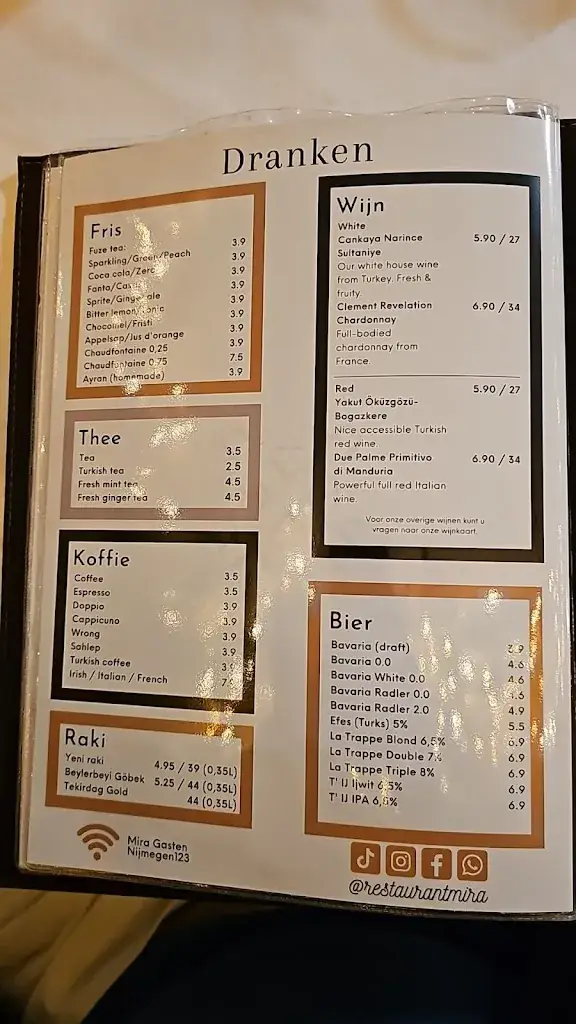 Dranken
Fris
Fuze tea:
Sparkling/Green/Peach 3.9
Coca cola/Zero 3.9
Fanta/ 3.9
Sprite/Ginger ale 3.9
Bitter lemon/ 3.9
Chocomel/Fristi 3.9
Appelsap/Jus d'orange 3.9
Chaudfontaine 0,25 3.9
Chaudfontaine 0,75 7.5
Ayran (homemade) 3.9
Thee
Tea 3.5
Turkish tea 2.5
Fresh mint tea 4.5
Fresh ginger tea 4.5
Koffie
Coffee 3.5
Espresso 3.5
Doppio 3.9
Cappicuno 3.9
Wrong 3.9
Sahlep 3.9
Turkish coffee
Irish / Italian / French
Raki
Yeni raki 4.95 / 39 (0,35L)
Beylerbeyi Göbek 5.25 / 44 (0,35L)
Tekirdag Gold 44 (0,35L)
Mira Gasten
Nijmegen123
Wijn
White
Cankaya Narince 5.90 / 27
Sultaniye
Our white house wine
from Turkey. Fresh &
fruity.
Clement Revelation 6.90 / 34
Chardonnay
Full-bodied
chardonnay from
France.
Red 5.90 / 27
Yakut Öküzgözü-
Bogazkere
Nice accessible Turkish
red wine.
Due Palme Primitivo 6.90 / 34
di Manduria
Powerful full red Italian
wine.
Voor onze overige wijnen kunt u
vragen naar onze wijnkaart.
Bier
Bavaria (draft)
Bavaria 0.0 4.6
Bavaria White 0.0 4.6
Bavaria Radler 0.0
Bavaria Radler 2.0 4.9
Efes (Turks) 5% 5.5
La Trappe Blond 6,5% 6.9
La Trappe Double 7% 6.9
La Trappe Triple 8% 6.9
T' IJ Ijwit 6,5% 6.9
T' IJ IPA 6.9
@restaurantmira